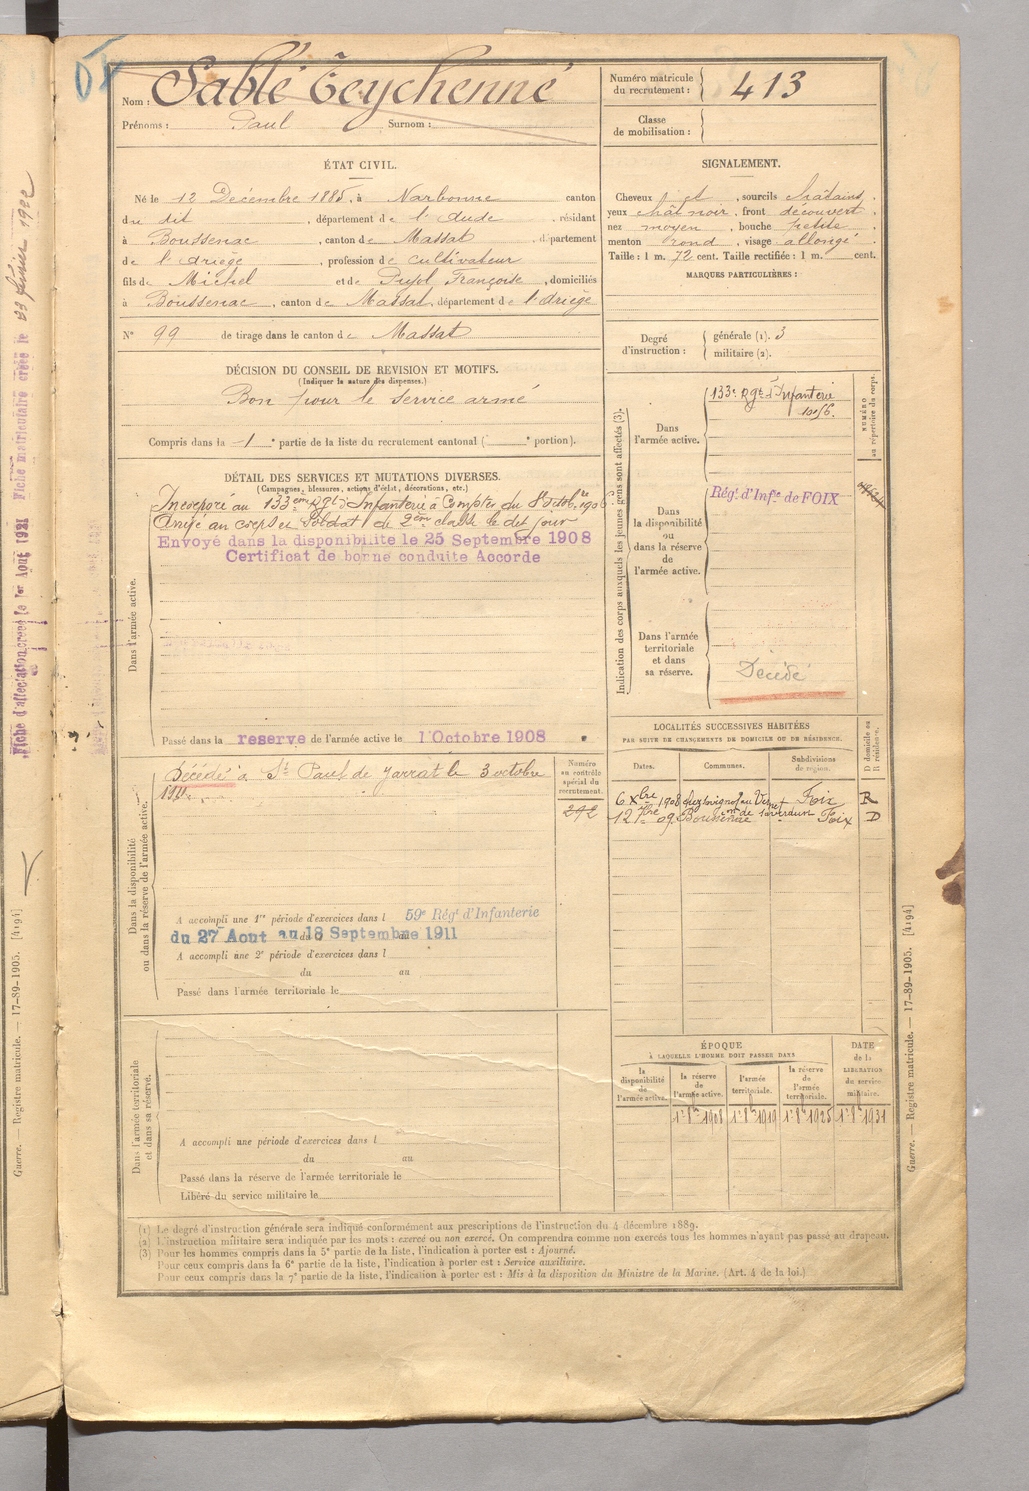 Nom : Sablé Teychenné
Prénoms : Paul Surnom :
Numéro matricule du recrutement : 413
Classe de mobilisation :
ÉTAT CIVIL.
Né le 12 Décembre 1885, à Narbonne canton
du dit, département de l'Aude, résidant
à Boussenac, canton de Massat, département
de l'Ariège, profession de cultivateur
fils de Michel et de Pujol Françoise, domiciliés
à Boussenac, canton de Massat, département de l'Ariège
N° 99 de tirage dans le canton de Massat
SIGNALEMENT.
Cheveux et, sourcils châtains,
yeux chât noir, front découvert,
nez moyen, bouche petite,
menton rond, visage allongé.
Taille : 1 m. 72 cent. Taille rectifiée : 1 m. cent.
MARQUES PARTICULIÈRES :
Degré d'instruction : générale (1). 3
militaire (2).
DÉCISION DU CONSEIL DE REVISION ET MOTIFS.
(Indiquer la nature des dispenses.)
Bon pour le service armé
Compris dans la 1e partie de la liste du recrutement cantonal ( e portion).
DÉTAIL DES SERVICES ET MUTATIONS DIVERSES.
(Campagnes, blessures, actions d'éclat, décorations, etc.)
Dans l'armée active.
Incorporé au 133ème Rgt d'Infanterie à Compter du 8 octobre 1906.
Arrivé au corps et Soldat de 2ème classe le dit jour
Envoyé dans la disponibilité le 25 Septembre 1908
Certificat de bonne conduite Accordé
Passé dans la reserve de l'armée active le 1 Octobre 1908
Indication des corps auxquels les jeunes gens sont affectés (3).
NUMÉRO au répertoire du corps.
Dans l'armée active.
133e Rgt d'Infanterie
Dans la disponibilité ou dans la réserve de l'armée active.
Régt. d'Infie de FOIX
Dans l'armée territoriale et dans sa réserve.
Décédé
LOCALITÉS SUCCESSIVES HABITÉES
PAR SUITE DE CHANGEMENTS DE DOMICILE OU DE RÉSIDENCE.
D domicile ou R résidence.
Dates. Communes. Subdivisions de région.
6 Xbre 1908 Foix R
12 7bre 09 Boussenac Foix D
Dans la disponibilité ou dans la réserve de l'armée active.
Numéro au contrôle spécial du recrutement.
292
Décédé à St Paul de Jarrat le 3 octobre
A accompli une 1re période d'exercices dans l 59e Régt d'Infanterie
du 27 Aout au 18 Septembre 1911
A accompli une 2e période d'exercices dans l
du au
Passé dans l'armée territoriale le
Dans l'armée territoriale et dans sa réserve.
A accompli une période d'exercices dans l
du au
Passé dans la réserve de l'armée territoriale le
Libéré du service militaire le
ÉPOQUE
À LAQUELLE L'HOMME DOIT PASSER DANS
DATE de la LIBÉRATION du service militaire.
la disponibilité de l'armée active. la réserve de l'armée active. l'armée territoriale. la réserve de l'armée territoriale.
1er 8bre 1908 1er 8bre 1919 1er 8bre 1925 1er 8bre 1931
(1) Le degré d'instruction générale sera indiqué conformément aux prescriptions de l'instruction du 4 décembre 1889.
(2) L'instruction militaire sera indiquée par les mots : exercé ou non exercé. On comprendra comme non exercés tous les hommes n'ayant pas passé au drapeau.
(3) Pour les hommes compris dans la 5e partie de la liste, l'indication à porter est : Ajourné.
Pour ceux compris dans la 6e partie de la liste, l'indication à porter est : Service auxiliaire.
Pour ceux compris dans la 7e partie de la liste, l'indication à porter est : Mis à la disposition du Ministre de la Marine. (Art. 4 de la loi.)
Guerre. — Registre matricule. — 17-89-1905. [4194]
Guerre. — Registre matricule. — 17-89-1905. [4194]
Fiche d'affectation créée le 1er Août 1921 Fiche matriculaire créée le 23 février 1922